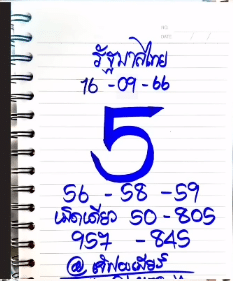 รัฐบาลไทย
16 - 09 - 66
5
56 - 58 - 59
เม็ดเดียว 50 - 805
957 - 845
@